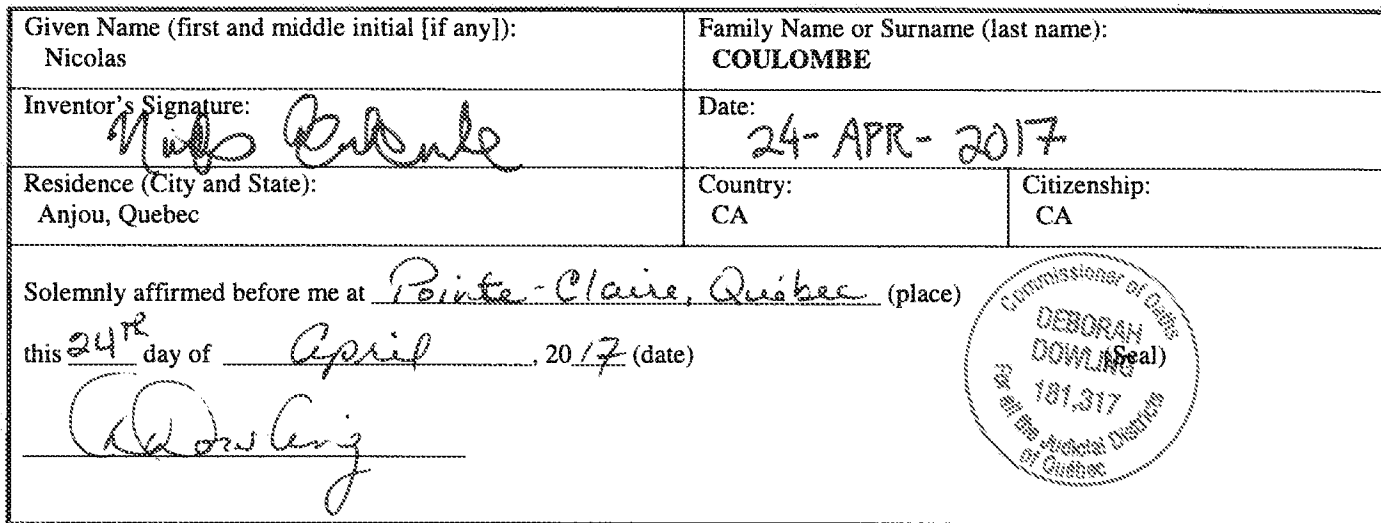 Given Name (first and middle initial [if any]): Family Name or Surname (last name):
Nicolas COULOMBE
Inventor's Signature: Date:
24-APR-2017
Residence (City and State): Country: Citizenship:
Anjou, Quebec CA CA
Solemnly affirmed before me at Pointe-Claire, Québec (place)
this 24th day of April, 2017 (date)
(Seal)
Commissioner of Oaths
DEBORAH
DOWLING
181,317
For all the Judicial Districts
of Québec